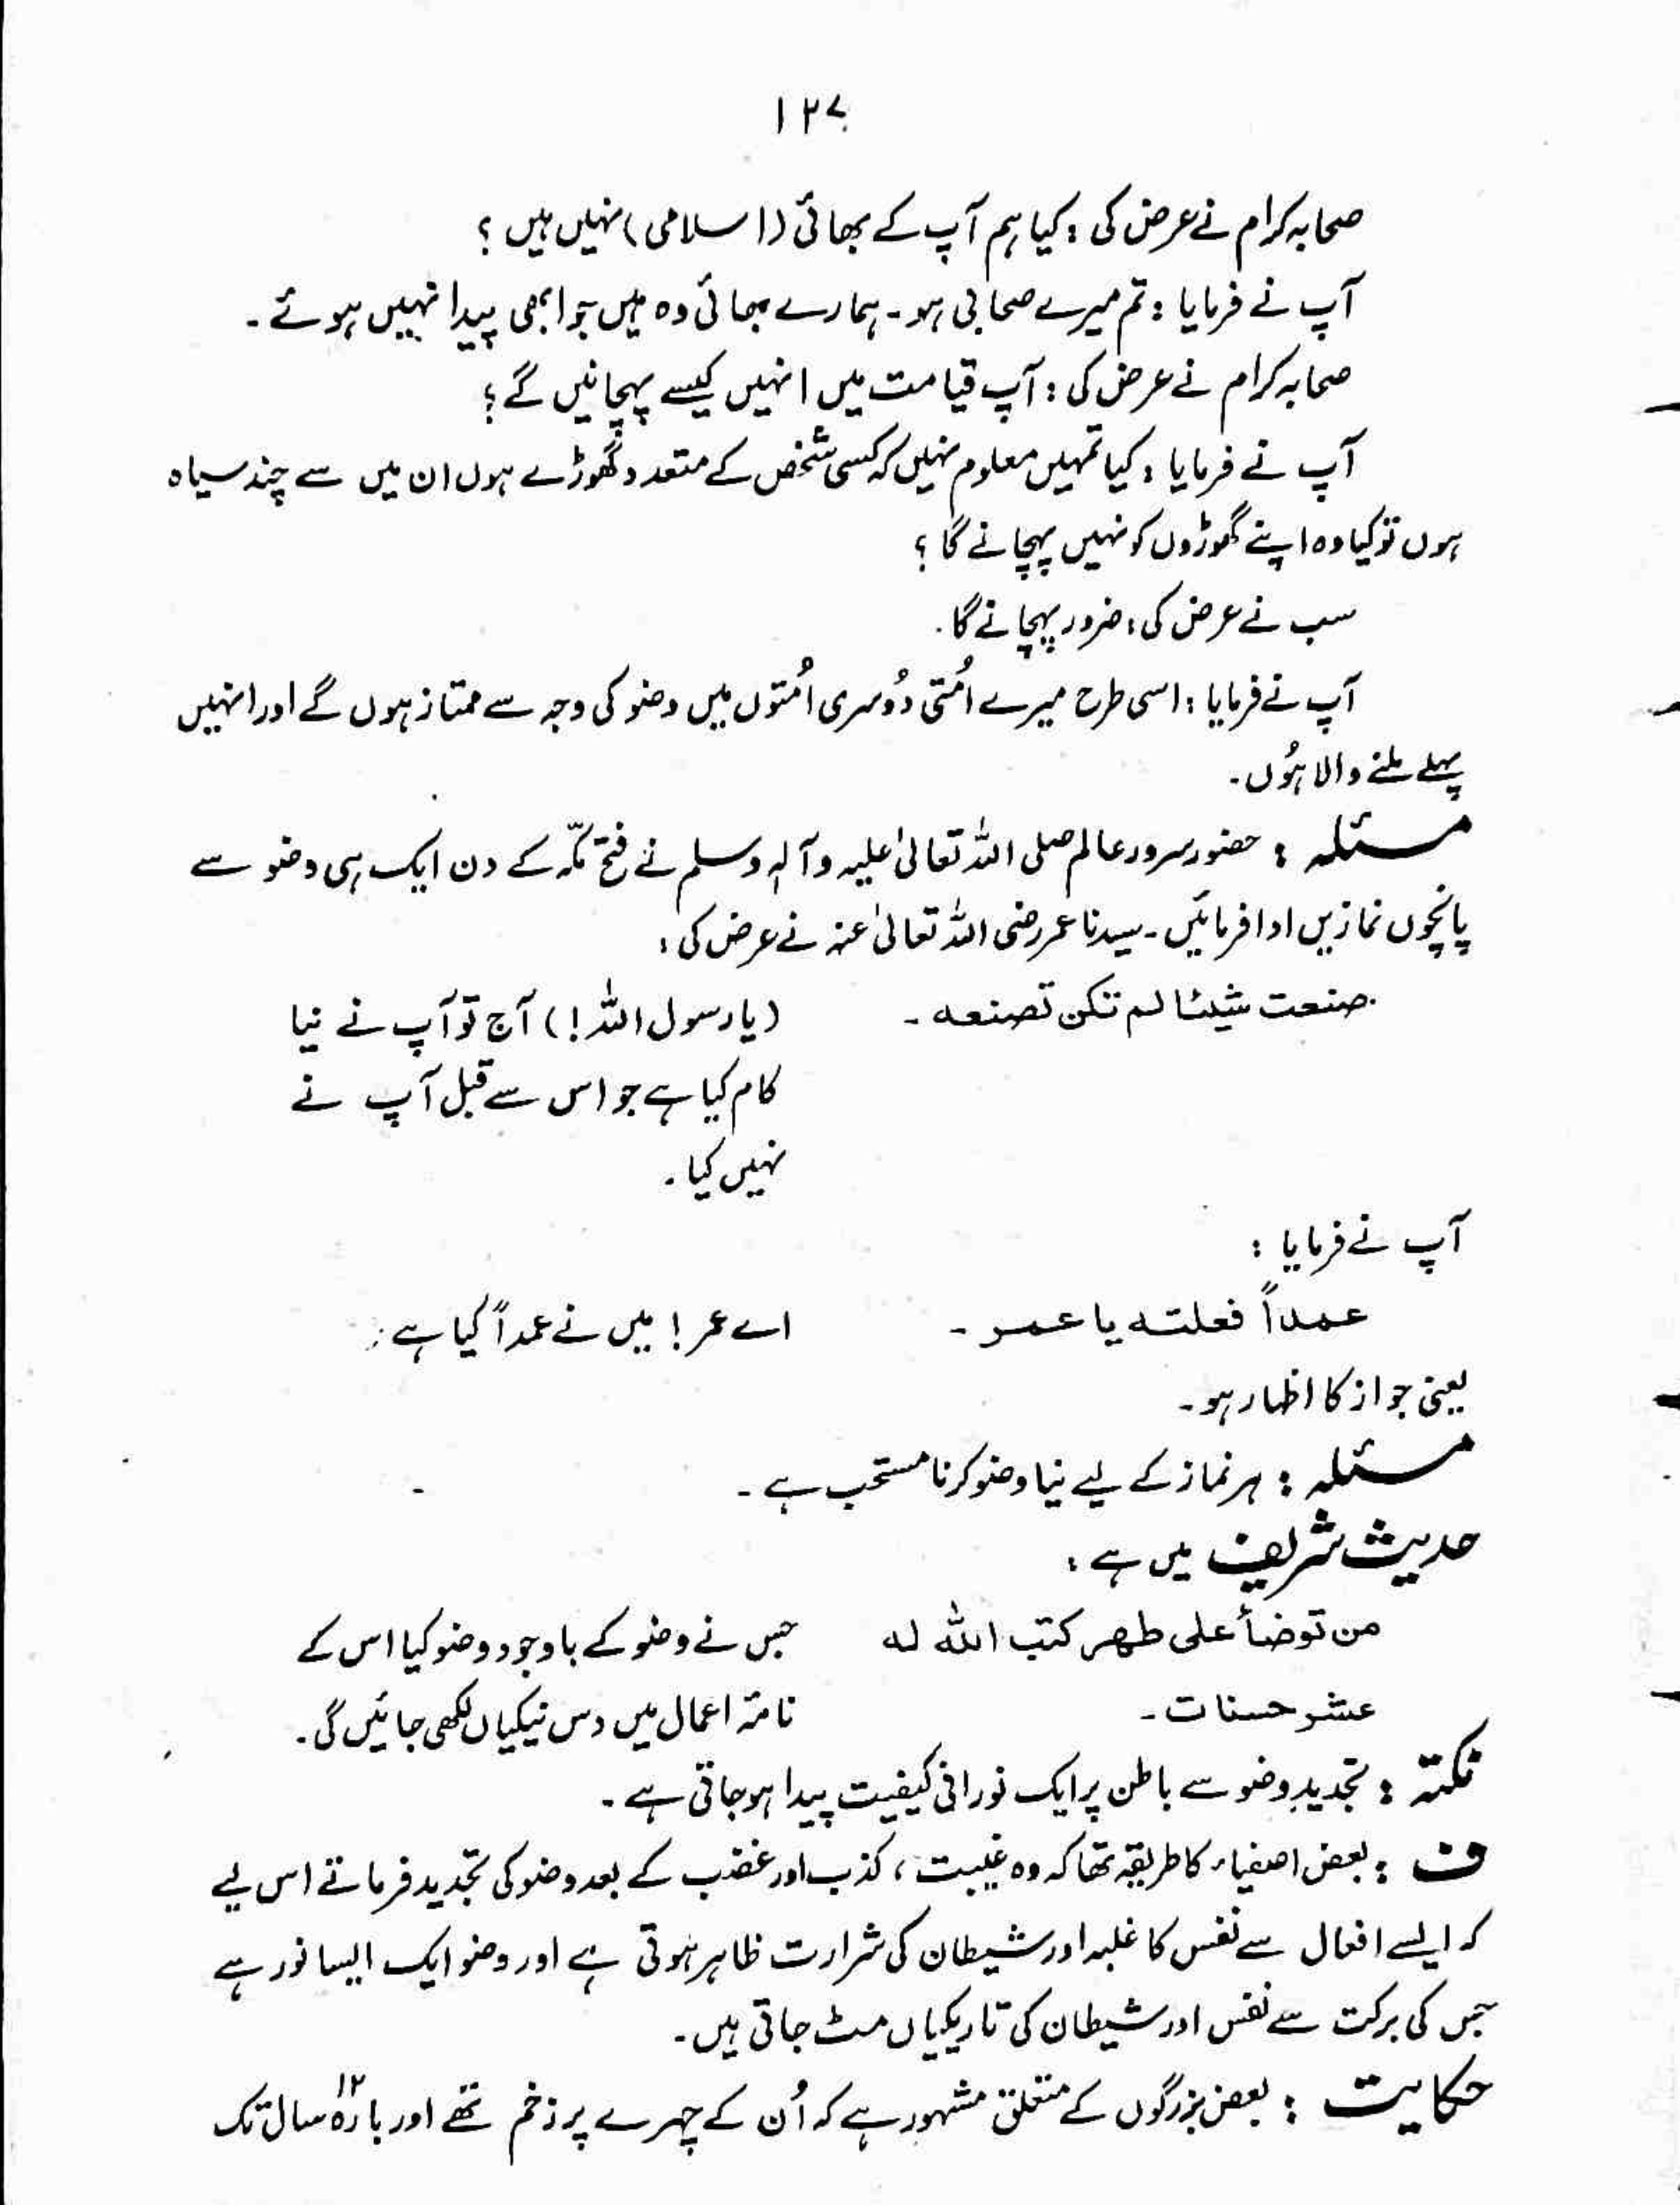 ۱۲۷
صحابہ کرام نے عرض کی : کیا ہم آپ کے بھائی (اسلامی) نہیں ہیں ؟
آپ نے فرمایا : تم میرے صحابی ہو ۔ ہمارے بھائی وہ ہیں جو ابھی پیدا نہیں ہوئے ۔
صحابہ کرام نے عرض کی : آپ قیامت میں انہیں کیسے پہچانیں گے ؟
آپ نے فرمایا : کیا تمہیں معلوم نہیں کہ کسی شخص کے متعدد گھوڑے ہوں ان میں سے چند سیاہ
ہوں تو کیا وہ اپنے گھوڑوں کو نہیں پہچانے گا ؟
سب نے عرض کی : ضرور پہچانے گا ۔
آپ نے فرمایا : اسی طرح میرے اُمتی دُوسری اُمتوں میں وضو کی وجہ سے ممتاز ہوں گے اور انہیں
پہلے ملنے والا ہُوں ۔
مسئلہ : حضور سرور عالم صلی اللہ تعالیٰ علیہ وآلہ وسلم نے فتح مکّہ کے دن ایک ہی وضو سے
پانچوں نمازیں ادا فرمائیں ۔ سیدنا عمر رضی اللہ تعالیٰ عنہ نے عرض کی :
صنعت شیئا لم تکن تصنعه ۔ (یا رسول اللہ !) آج تو آپ نے نیا
کام کیا ہے جو اس سے قبل آپ نے
نہیں کیا ۔
آپ نے فرمایا :
عمداً فعلته یا عمر ۔ اے عمر ! میں نے عمداً کیا ہے ۔
یعنی جواز کا اظہار ہو ۔
مسئلہ : ہر نماز کے لیے نیا وضو کرنا مستحب ہے ۔
حدیث شریف میں ہے :
من توضأ علی طهر کتب الله له جس نے وضو کے باوجود وضو کیا اس کے
عشر حسنات ۔ نامۂ اعمال میں دس نیکیاں لکھی جائیں گی ۔
نکتہ : تجدیدِ وضو سے باطن پر ایک نورانی کیفیت پیدا ہو جاتی ہے ۔
ف : بعض اصفیاء کا طریقہ تھا کہ وہ غیبت ، کذب اور غضب کے بعد وضو کی تجدید فرماتے اس لیے
کہ ایسے افعال سے نفس کا غلبہ اور شیطان کی شرارت ظاہر ہوتی ہے اور وضو ایک ایسا نور ہے
جس کی برکت سے نفس اور شیطان کی تاریکیاں مٹ جاتی ہیں ۔
حکایت : بعض بزرگوں کے متعلق مشہور ہے کہ اُن کے چہرے پر زخم تھے اور بارہ ۱۲ سال تک